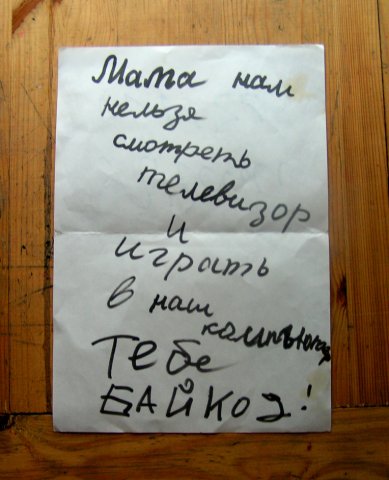 Мама нам
нельзя
смотреть
телевизор
и
играть
в наш
компьютер
Тебе
БАЙКОЭ!